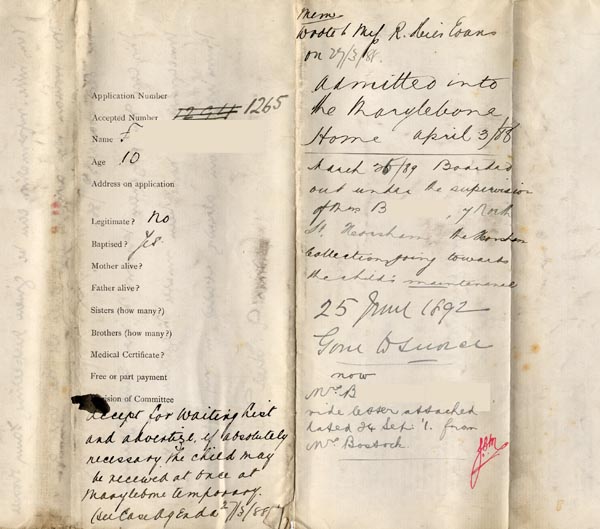 Application Number
Accepted Number 1294 1265
Name F
Age 10
Address on application
Legitimate? No
Baptised? Yes
Mother alive?
Father alive?
Sisters (how many?)
Brothers (how many?)
Medical Certificate?
Free or part payment
ision of Committee
Accept for Waiting List
and advertize, if absolutely
necessary the child may
be received at once at
Marylebone temporary.
(See Case Agenda 27/3/88)
Mem
Wrote to R. Evans
on 27/3/88.
Admitted into
the Marylebone
Home April 3/88
March 26/89 Boarded
out under the supervision
of Mrs B , 7 North
St. Horsham, the Horsham
Collection going towards
the child's maintenance
25 June 1892
Gone to Service
now
Mrs B
vide letter attached
dated 24 Sept. from
Mrs Bostock.